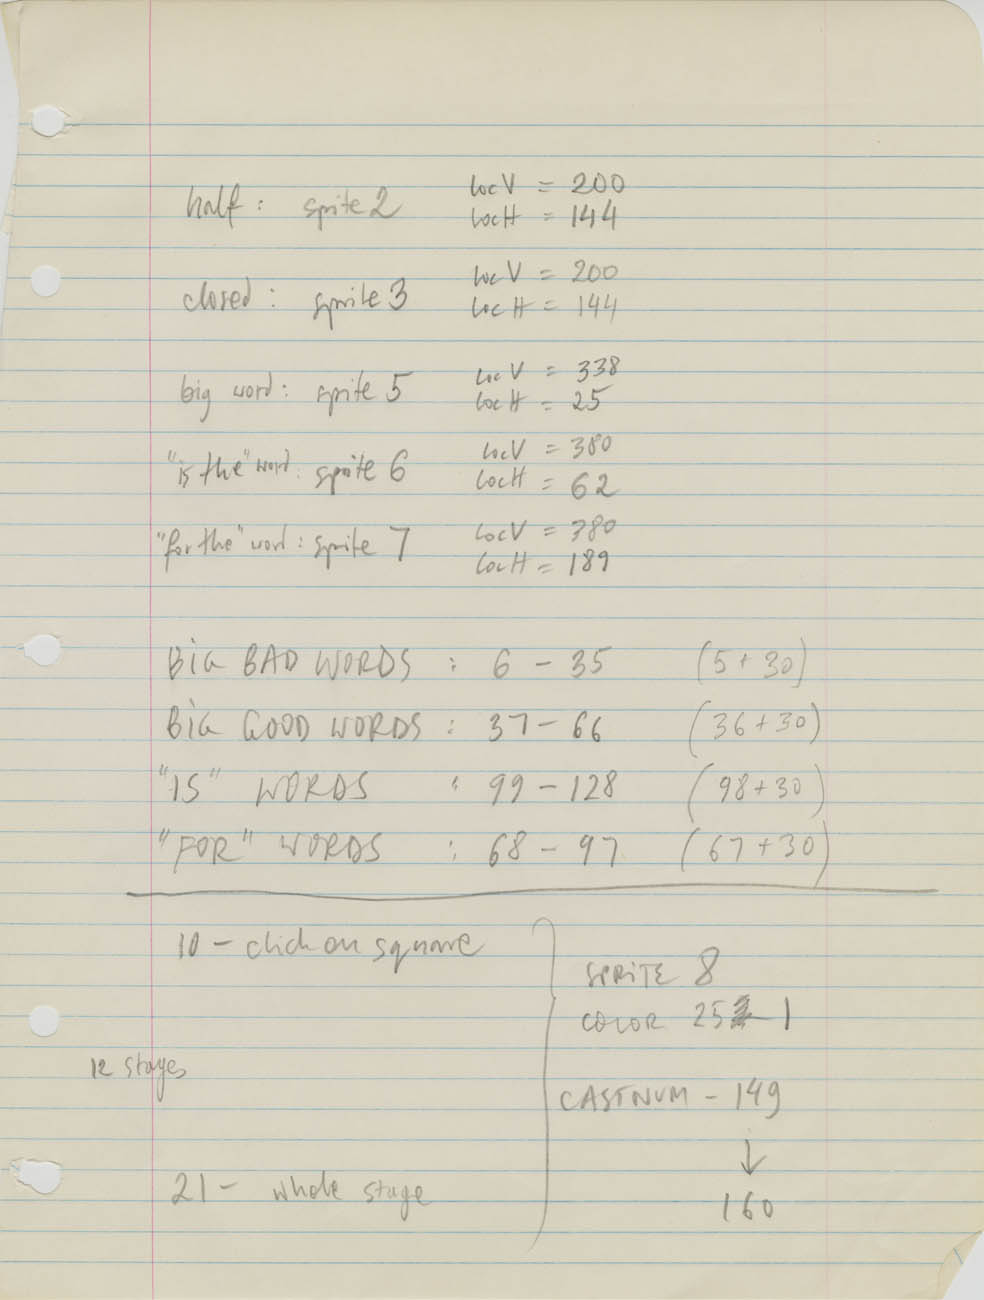 half : sprite 2 locV = 200
locH = 144
closed : sprite 3 locV = 200
locH = 144
big word : sprite 5 locV = 338
locH = 25
"is the" word : sprite 6 locV = 380
locH = 62
"for the" word : sprite 7 locV = 380
locH = 189
BIG BAD WORDS : 6 - 35 (5 + 30)
BIG GOOD WORDS : 37 - 66 (36 + 30)
"IS" WORDS : 99 - 128 (98 + 30)
"FOR" WORDS : 68 - 97 (67 + 30)
10 - click on square
SPRITE 8
COLOR 25 1
12 stages
CASTNUM - 149
↓
21 - whole stage
160